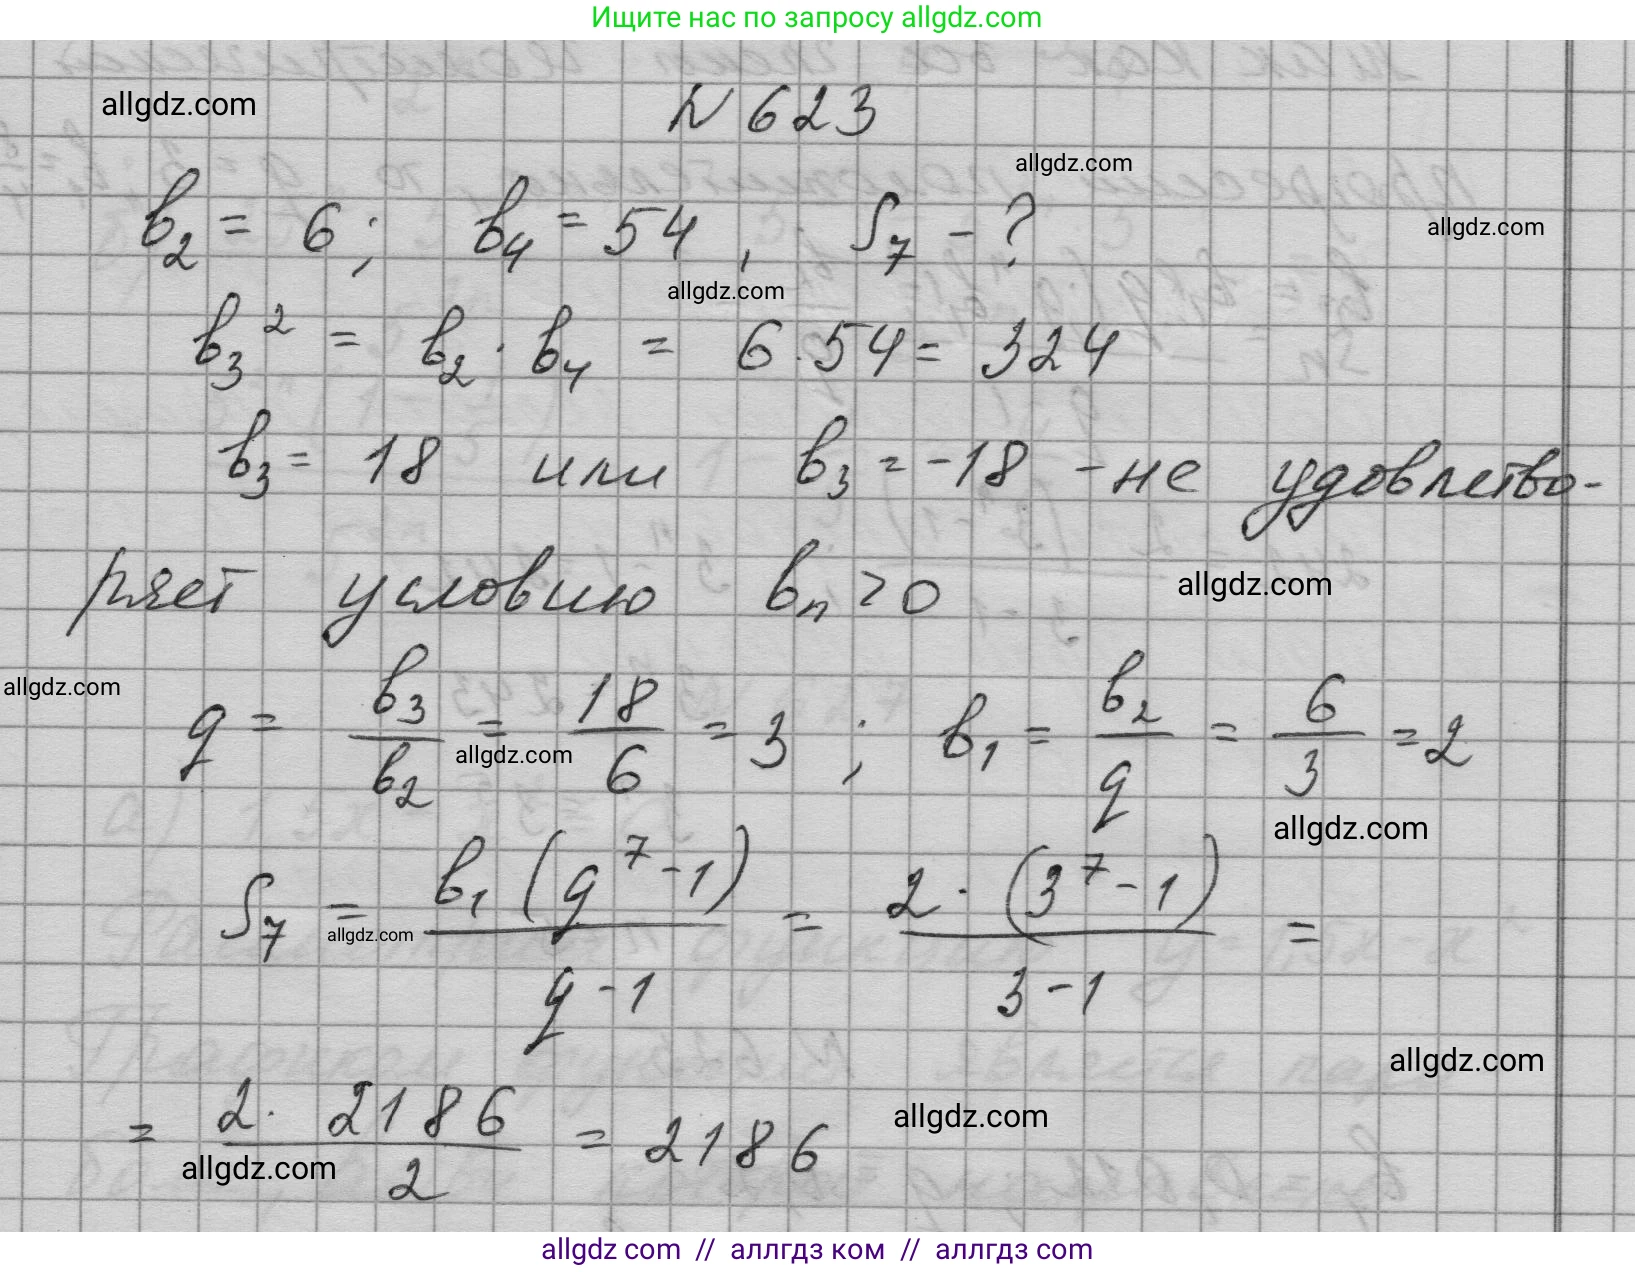 Ищите нас по запросу allgdz.com
allgdz.com
N 623
allgdz.com
b₂ = 6; b₄ = 54, S₇ - ?
allgdz.com
allgdz.com
b₃² = b₂ · b₄ = 6 · 54 = 324
b₃ = 18 или b₃ = -18 - не удовлетво-
ряет условию bₙ > 0
allgdz.com
allgdz.com
q = b₃/b₂ = 18/6 = 3; b₁ = b₂/q = 6/3 = 2
allgdz.com
allgdz.com
S₇ = b₁(q⁷-1)/(q-1) = 2·(3⁷-1)/(3-1) =
allgdz.com
allgdz.com
= 2·2186/2 = 2186
allgdz.com
allgdz.com
allgdz com // аллгдз ком // аллгдз com